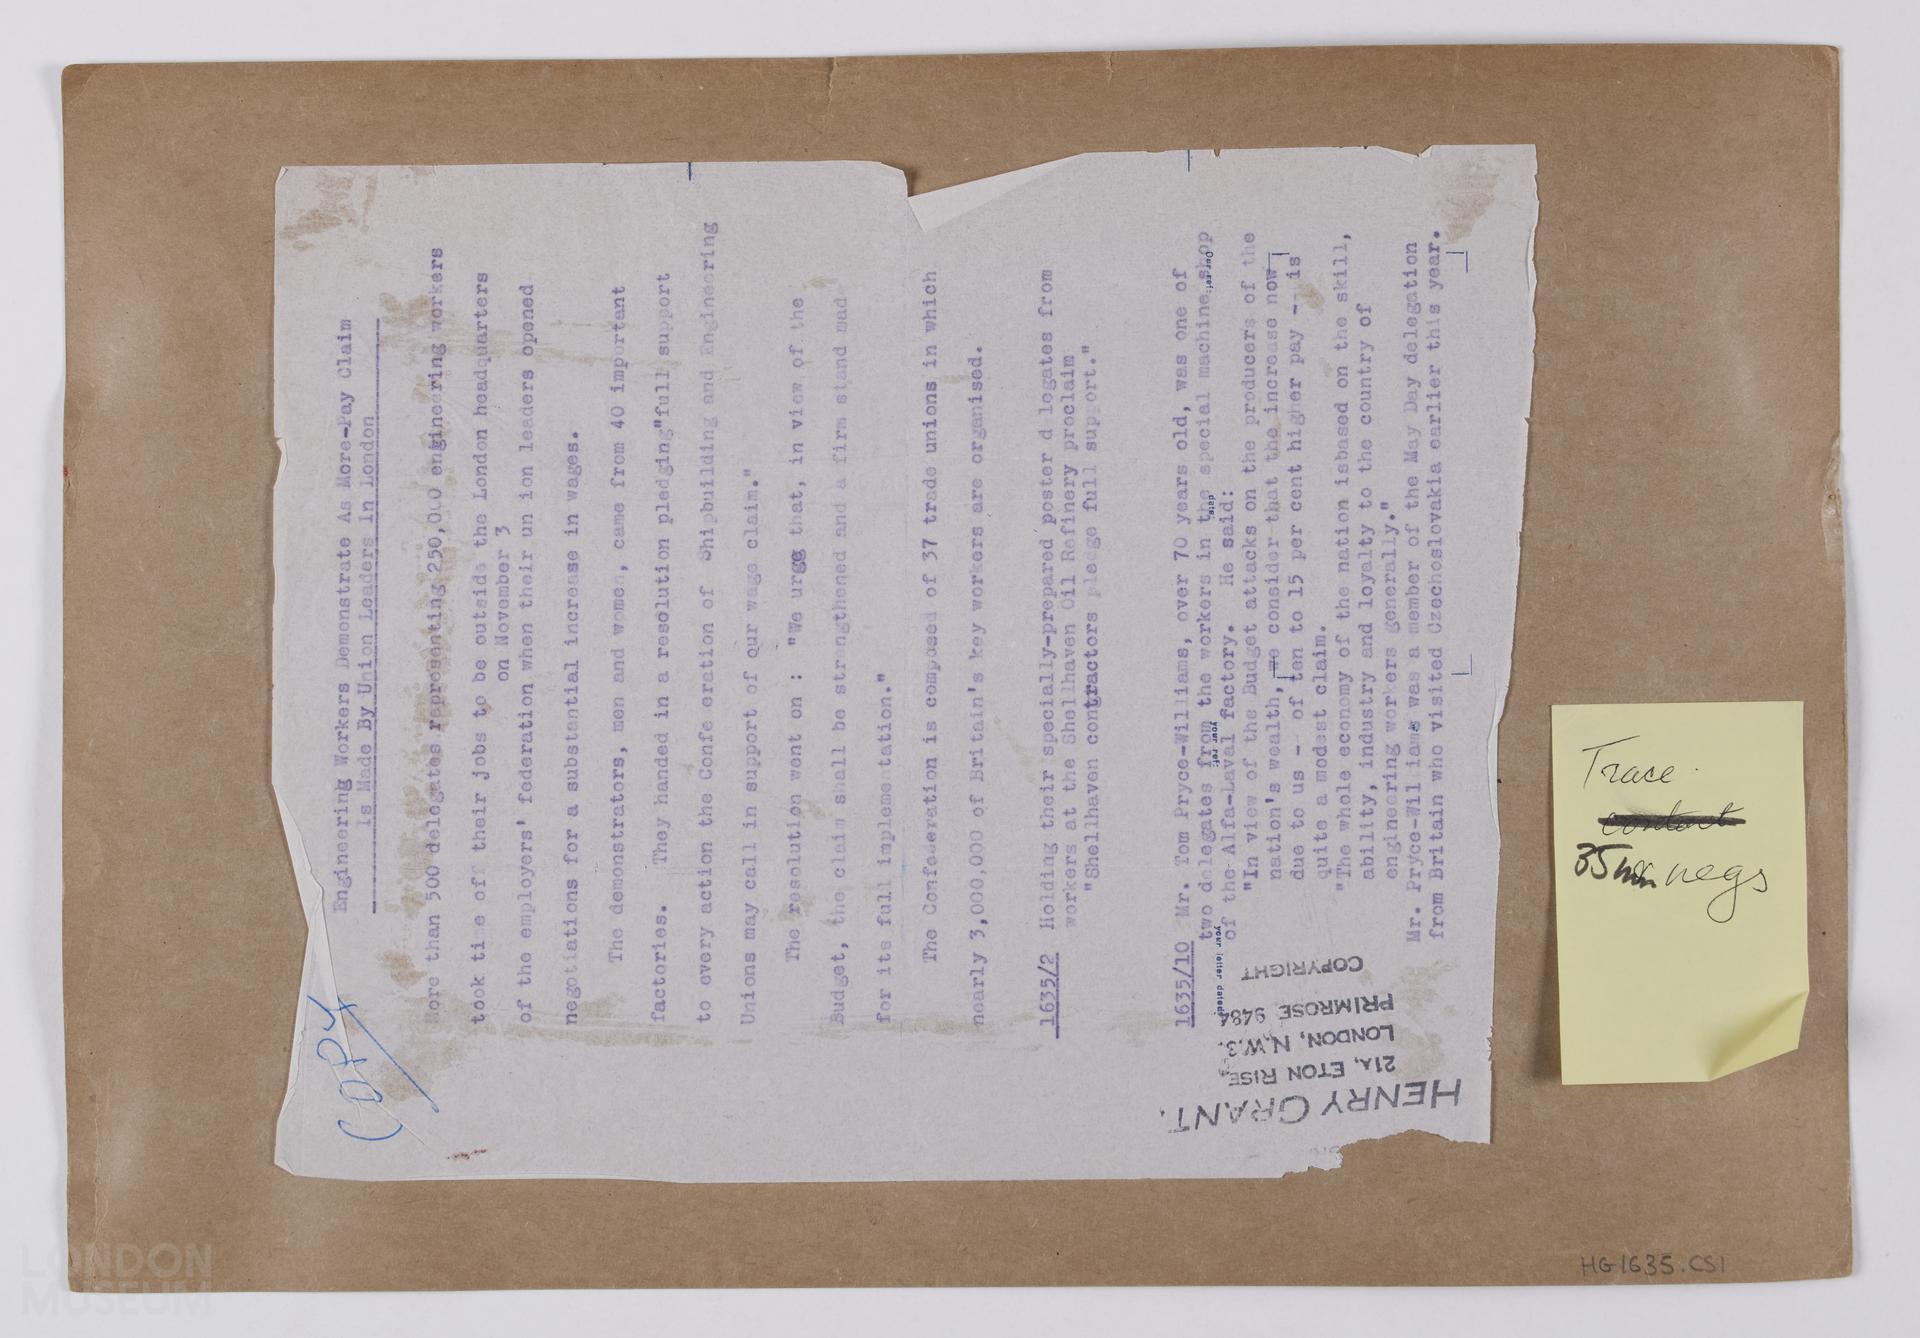 Copy
Engineering Workers Demonstrate As More-Pay Claim
Is Made By Union Leaders In London
More than 500 delegates representing 250,000 engineering workers
took time off their jobs to be outside the London headquarters
on November 3
of the employers' federation when their un ion leaders opened
negotiations for a substantial increase in wages.
The demonstrators, men and women, came from 40 important
factories. They handed in a resolution pledging"full support
to every action the Confe eration of Shipbuilding and Engineering
Unions may call in support of our wage claim."
The resolution went on : "We urge that, in view of the
Budget, the claim shall be strengthened and a firm stand made
for its full implementation."
The Confederation is composed of 37 trade unions in which
nearly 3,000,000 of Britain's key workers are organised.
1635/2 Holding their specially-prepared poster d legates from
workers at the Shellhaven Oil Refinery proclaim
"Shellhaven contractors pledge full support."
1635/10 Mr. Tom Pryce-Williams, over 70 years old, was one of
two delegates from the workers in the special machine shop
of the Alfa-Laval factory. He said:
"In view of the Budget attacks on the producers of the
nation's wealth, we consider that the increase now
due to us - of ten to 15 per cent higher pay -- is
quite a modest claim.
"The whole economy of the nation isbased on the skill,
ability, industry and loyalty to the country of
engineering workers generally."
Mr. Pryce-Williams was a member of the May Day delegation
from Britain who visited Czechoslovakia earlier this year.
Our ref:
date
your ref:
your letter dated
HENRY GRANT.
21A, ETON RISE,
LONDON, N.W.3.
PRIMROSE 9484
COPYRIGHT
Trace
contact
35mm negs
HG1635.CS1
LONDON
MUSEUM